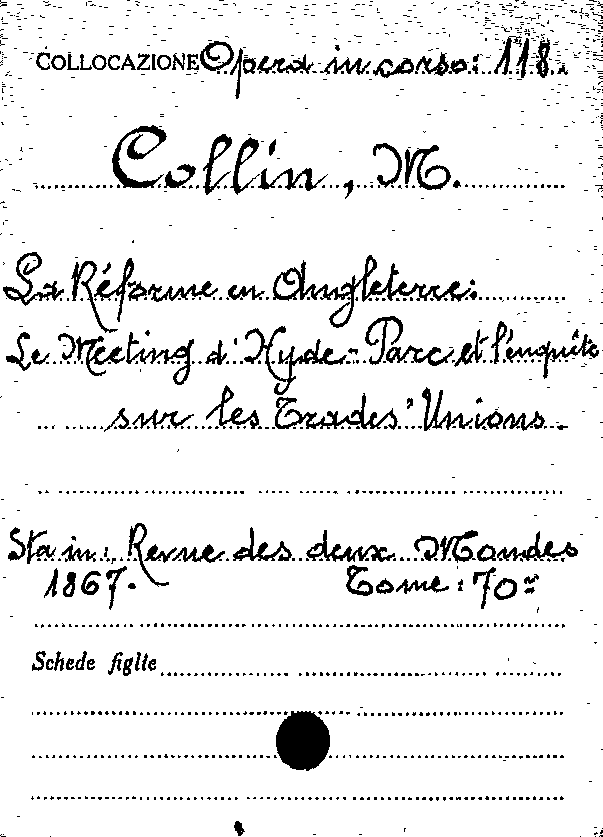 COLLOCAZIONE Opera in corso: 118.
Collin, M.
La Réforme en Angleterre:
Le Meeting d'Hyde-Parc et l'enquête
sur les Trades' Unions.
Sta in: Revue des deux Mondes
1867. Tome: 70º
Schede figlie